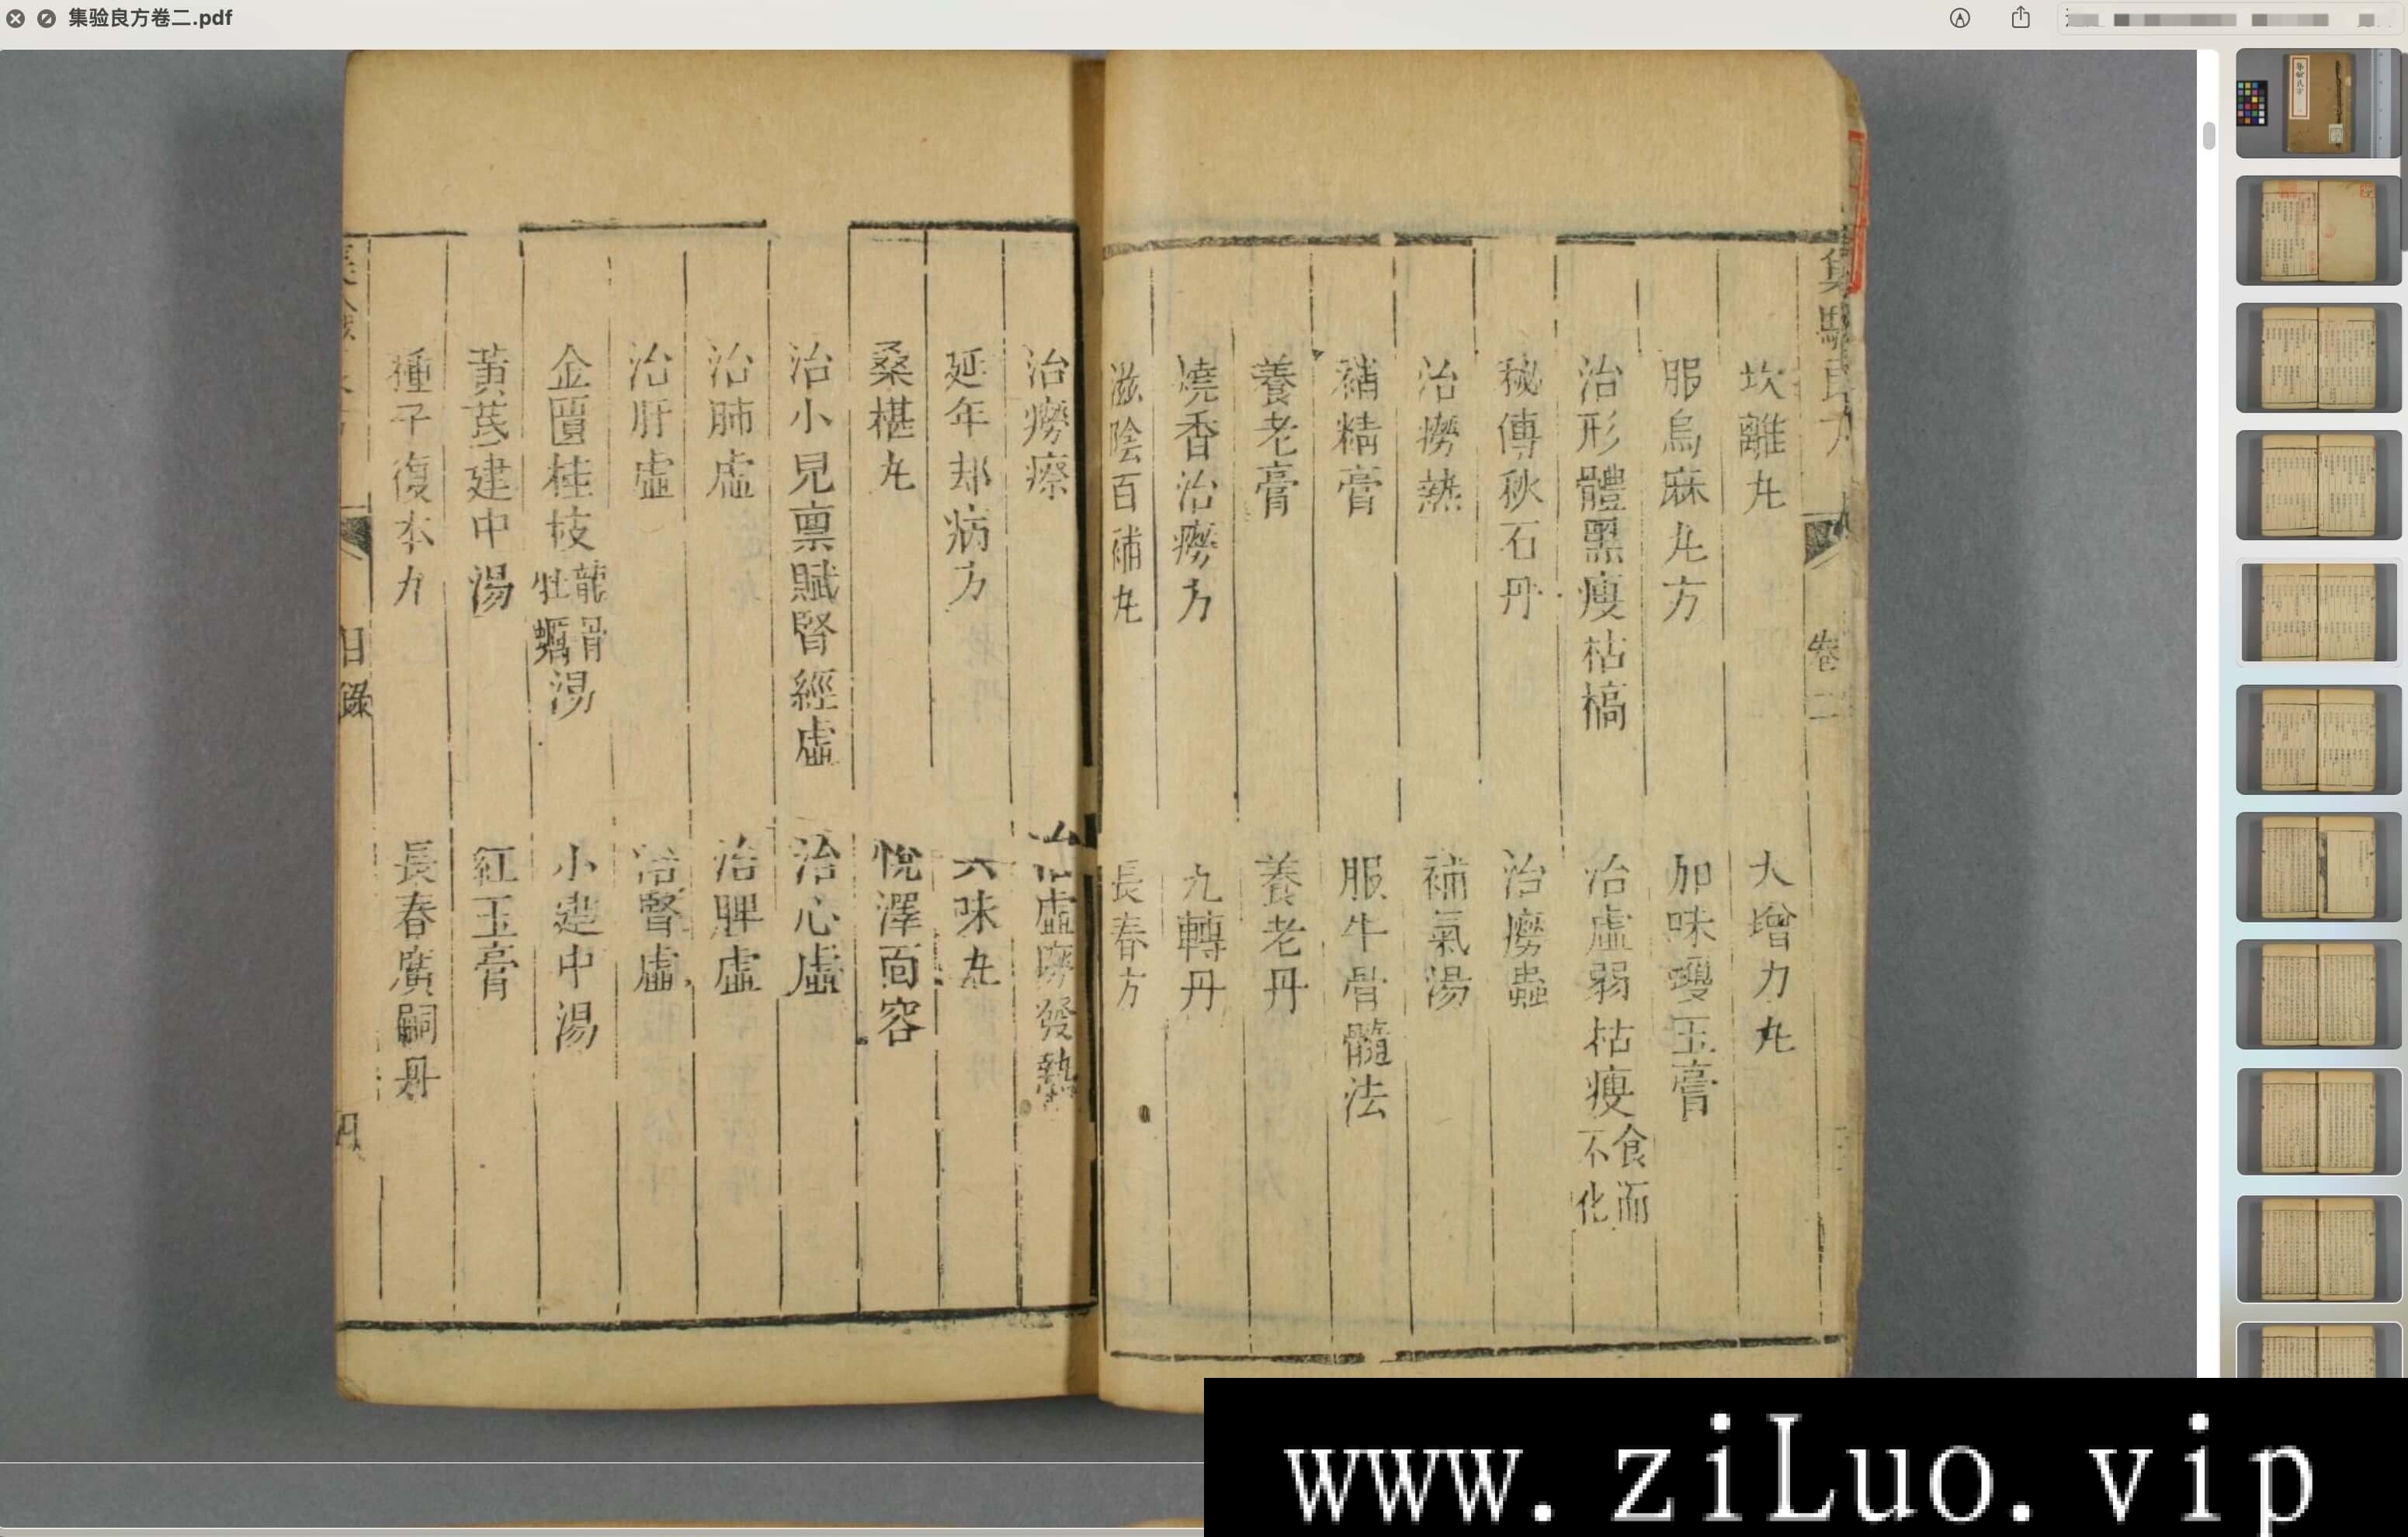 集验良方卷二.pdf
集驗良方
卷二
坎離丸
大增力丸
服烏麻丸方
加味瓊玉膏
治形體黑瘦枯槁
治虛弱枯瘦食而不化
秘傳秋石丹
治癆蟲
治癆熱
補氣湯
補精膏
服牛骨髓法
養老膏
養老丹
燒香治癆方
九轉丹
滋陰百補丸
長春方
治癆瘵
治虛癆發熱
延年却病方
六味丸
桑椹丸
悅澤面容
治小兒禀賦腎經虛
治心虛
治肺虛
治脾虛
治肝虛
治腎虛
金匱桂枝龍骨牡蠣湯
小建中湯
黃芪建中湯
紅玉膏
種子復本丸
長春廣嗣丹
目錄
www.ziLuo.vip